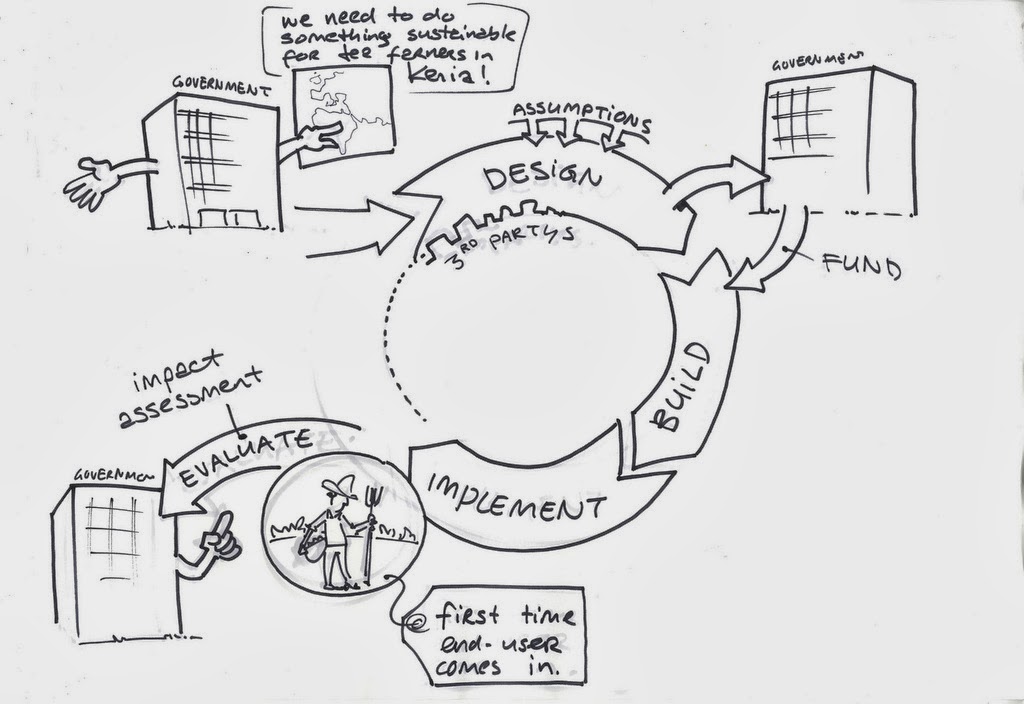 we need to do
something sustainable
for tee fermers in
Kenia!
GOVERNMENT
GOVERNMENT
ASSUMPTIONS
DESIGN
3RD PARTYS
FUND
BUILD
impact
assessment
EVALUATE
GOVERNMEN
IMPLEMENT
first time
end-user
comes in.